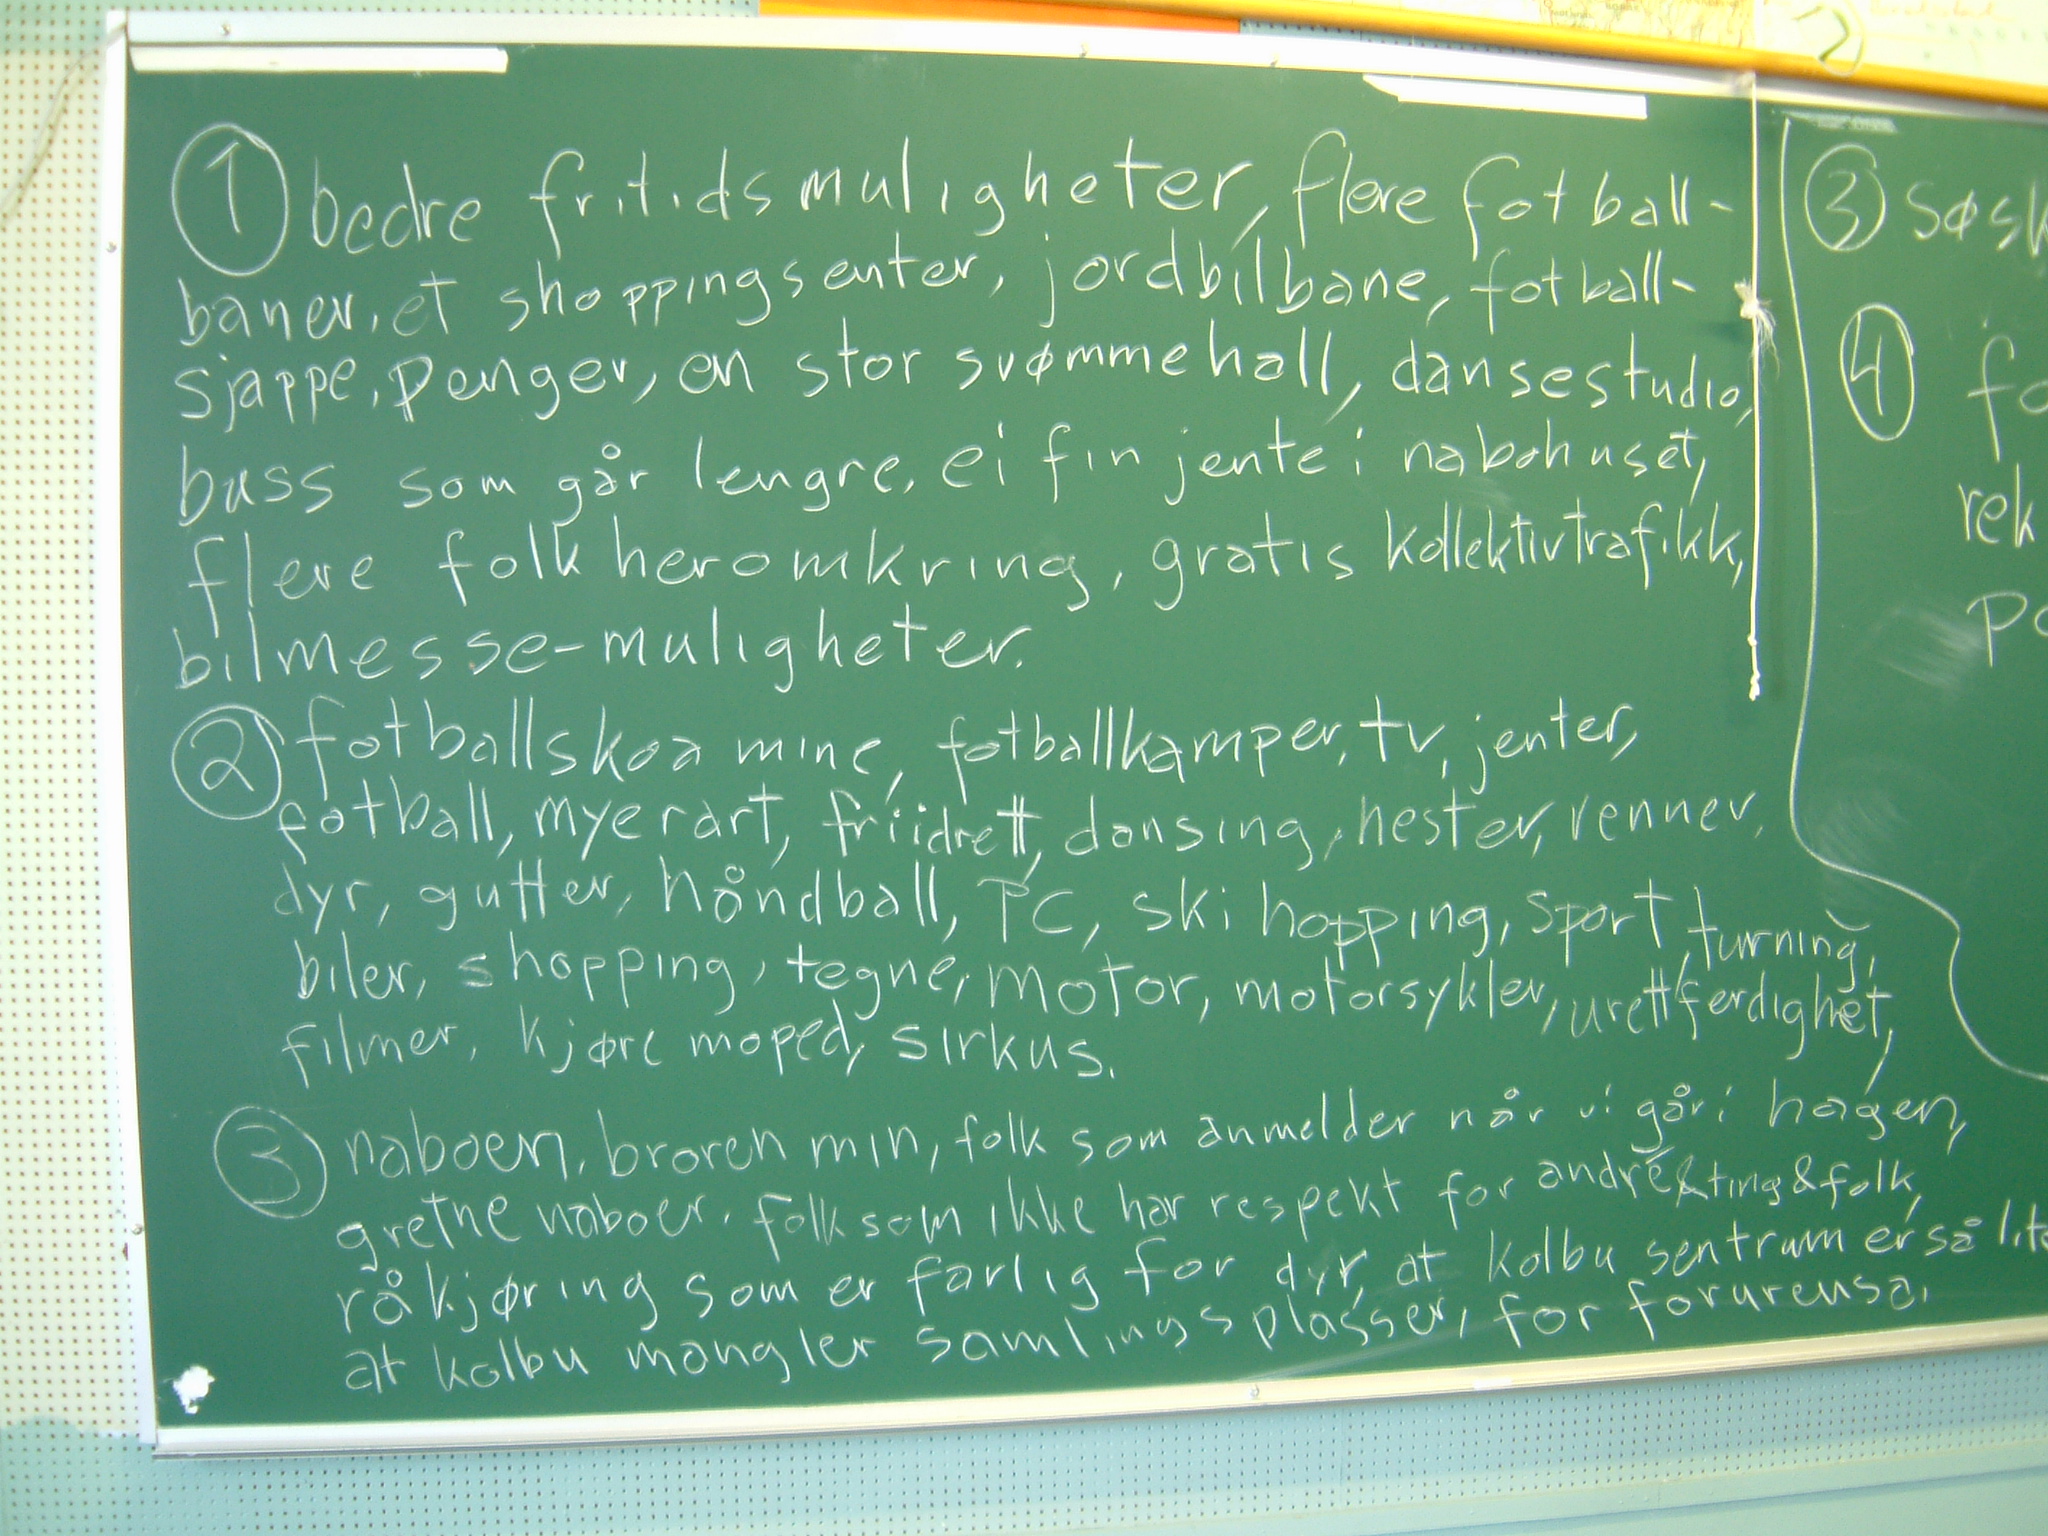 ① bedre fritidsmuligheter, flere fotball-
baner, et shoppingsenter, jordbilbane, fotball-
sjappe, penger, en stor svømmehall, dansestudio,
buss som går lengre, ei fin jente i nabohuset,
flere folk heromkring, gratis kollektivtrafikk,
bilmesse-muligheter.
② fotballskoa mine, fotballkamper, tv, jenter,
fotball, mye rart, friidrett, dansing, hester, venner,
dyr, gutter, håndball, PC, ski hopping, sport, turning,
biler, shopping, tegne, motor, motorsykler, urettferdighet,
filmer, kjøre moped, sirkus.
③ naboen, broren min, folk som anmelder når vi går i hagen,
gretne naboer, folk som ikke har respekt for andre & ting & folk,
råkjøring som er farlig for dyr, at kolbu sentrum er så lite
at kolbu mangler samlingsplasser, for forurensa.
③ søsk
④ fo
rek
po